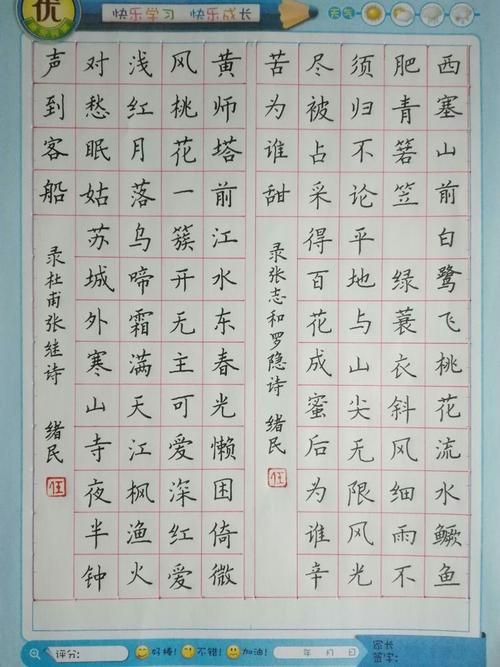 优
快乐学习 快乐成长
天气
西塞山前白鹭飞桃花流水鳜鱼
肥青箬笠 绿蓑衣斜风细雨不
须归不论平地与山尖无限风光
尽被占采得百花成蜜后为谁辛
苦为谁甜
录张志和罗隐诗 绪民
黄师塔前江水东春光懒困倚微
风桃花一簇开无主可爱深红爱
浅红月落乌啼霜满天江枫渔火
对愁眠姑苏城外寒山寺夜半钟
声到客船
录杜甫张继诗 绪民
评分:
好棒! 不错! 加油!
年 月 日
家长
签字: